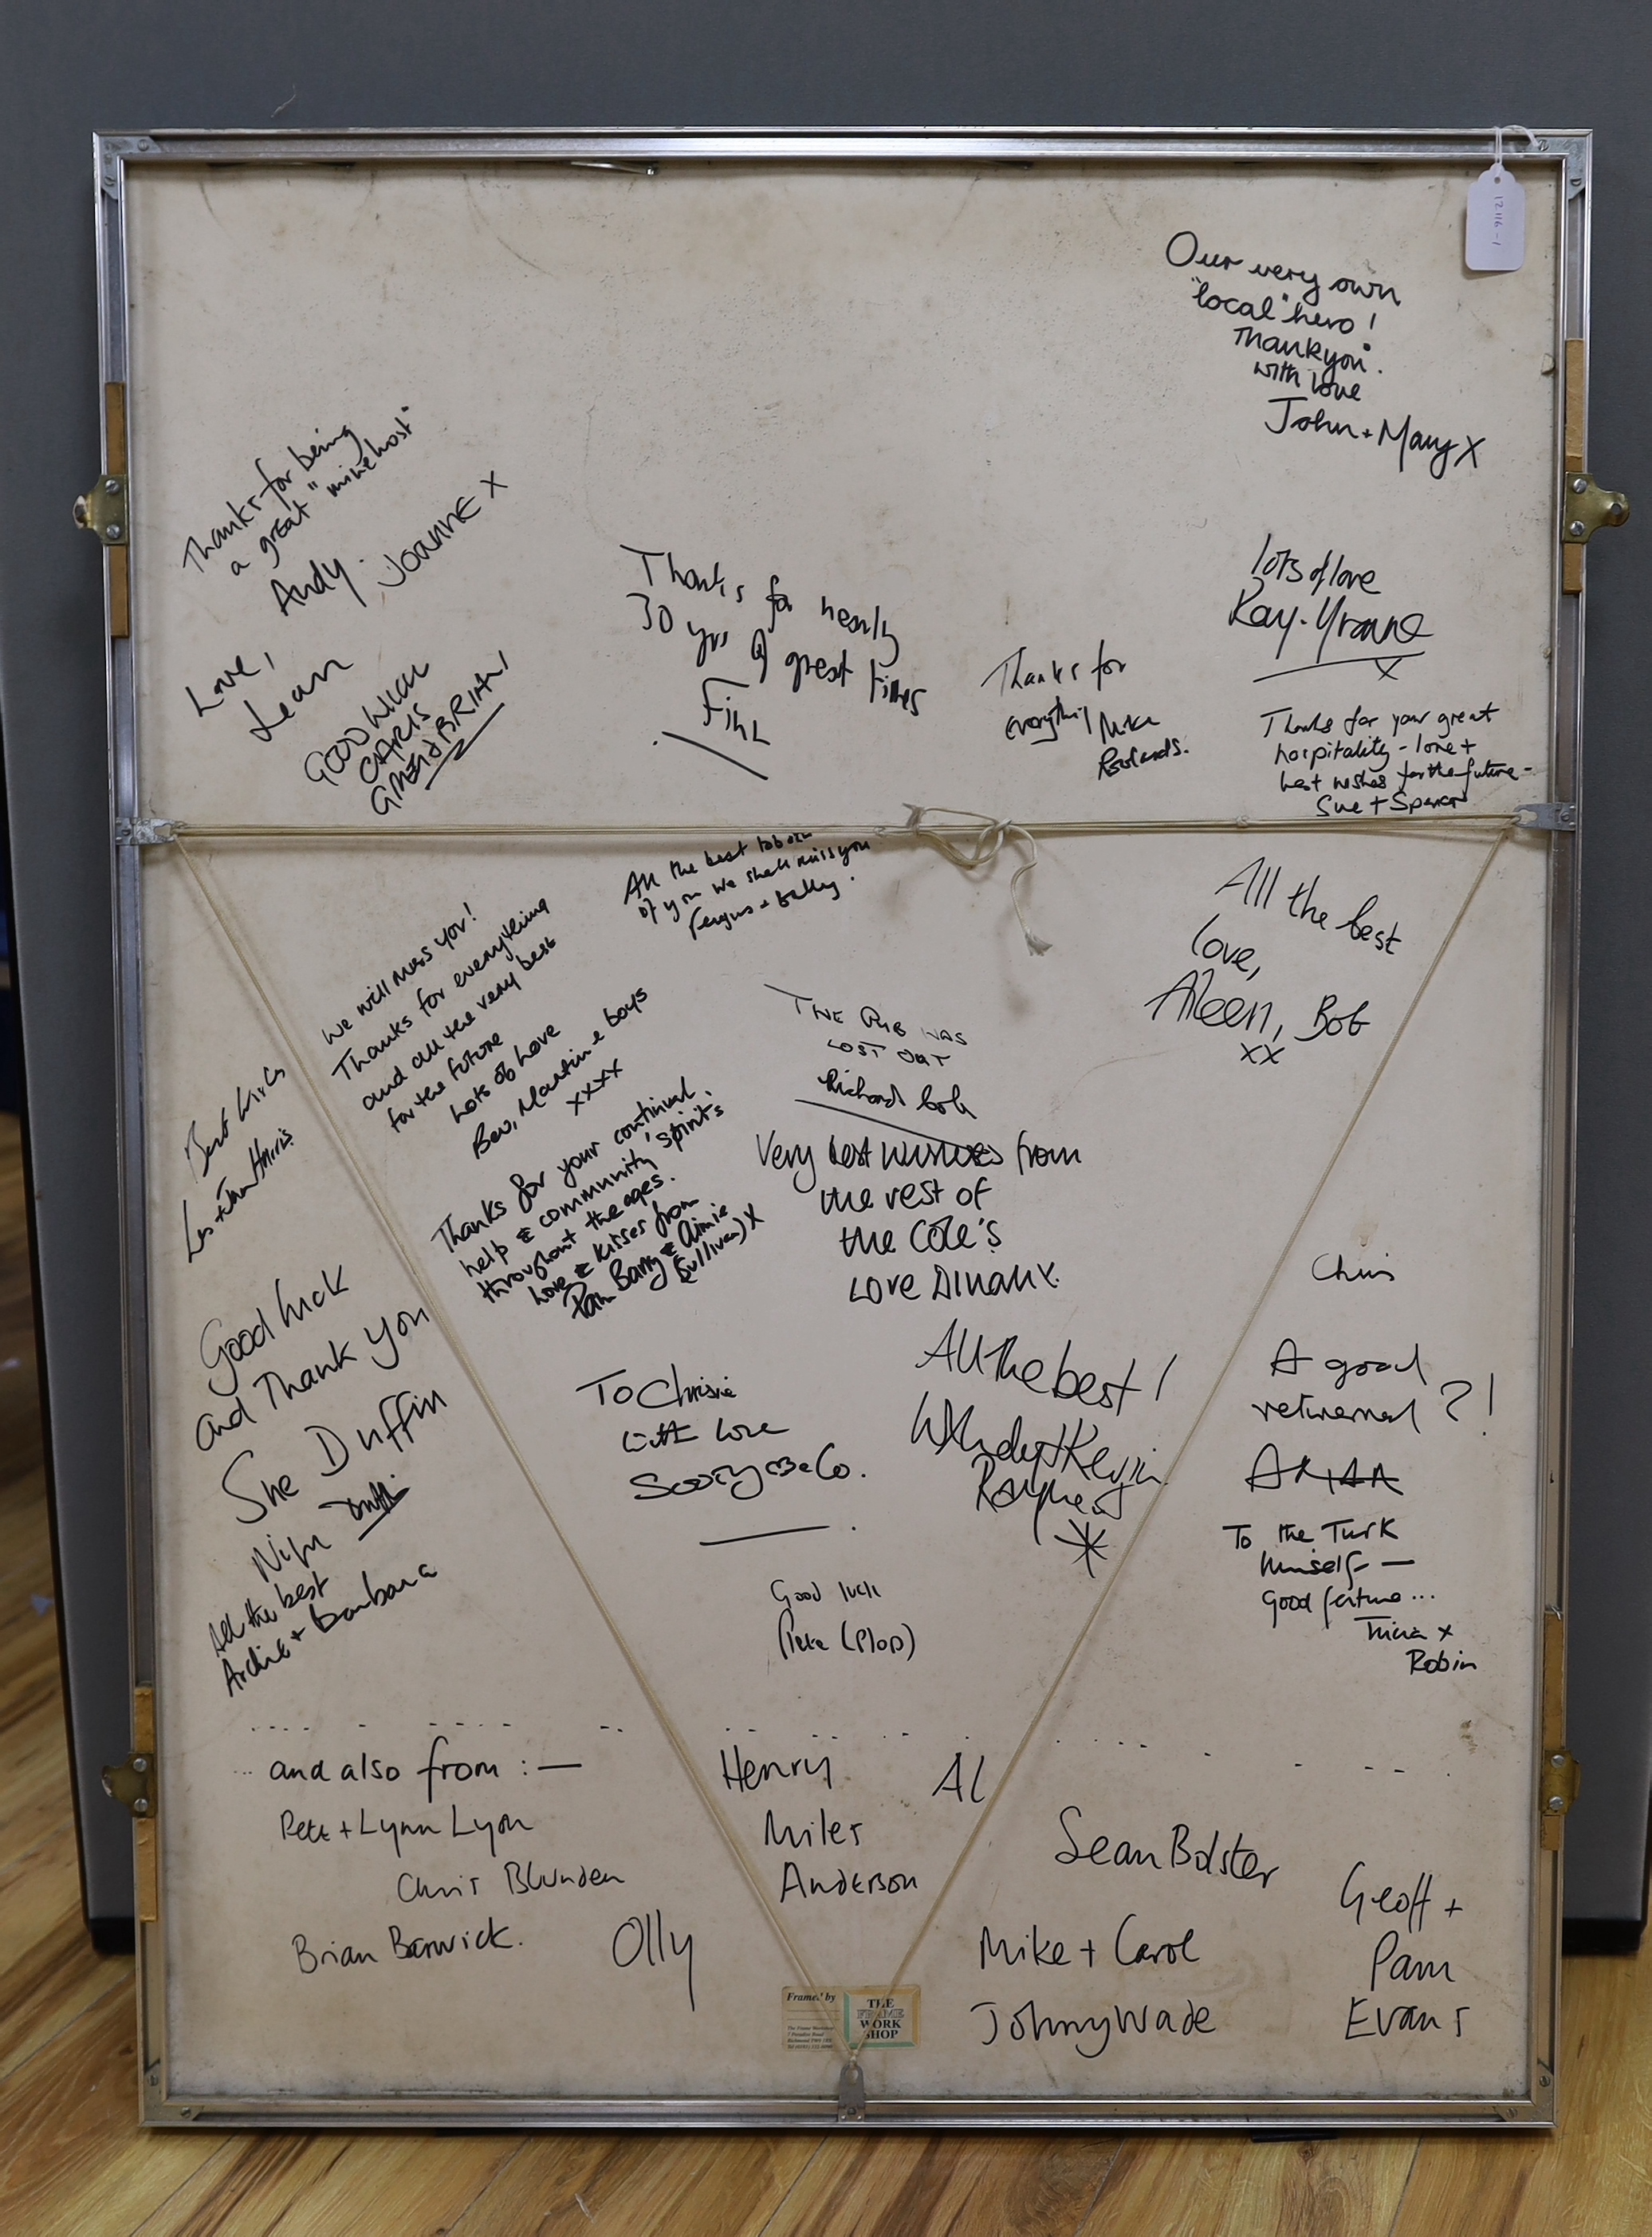 12116-1
Our very own
"local" hero!
Thankyou.
with love
John + Mary X
Thanks for being
a great "mine host"
Andy. JOANNE X
Love,
Lean
GOOD LUCK
CHRIS
Thanks for nearly
30 yrs of great times
Thanks for
everything Mike
Rowlands.
lots of love
Ray. Yvonne
X
Thanks for your great
hospitality - love +
best wishes for the future -
Sue + Spencer
All the best to both
of you we shall miss you
Fergus +
We will miss you!
Thanks for everything
and all the very best
for the future
Lots of Love
Bev, Martin & boys
xxxx
All the best
love,
Aileen, Bob
xx
THE PUB WAS
LOST OUT
Richard
Best wishes
Les + Jean Harris
Thanks for your continual
help & community 'spirit's
throughout the ages.
Love & kisses from
Pam Barry & Aimie
Sullivan) X
Very best wishes from
the rest of
the COLE's
LOVE DINAH X.
Good luck
and Thank you
She Duffin
All the best
Archie + Barbara
To Chrissie
with love
& Co.
All the best!
Wendy + Kevin
Chris
A good
returned ?!
To the Turk
himself —
Good fortune...
Tricia x
Robin
Good luck
Pete (Plop)
... and also from : —
Pete + Lynn Lyon
Chris Blunden
Brian Barwick.
Olly
Henry
Miles
Anderson
Al
Sean Bolster
Mike + Carol
Johnny Wade
Geoff +
Pam
Evans
Framed by
The Frame Workshop
7 Paradise Road
THE
FRAME
WORK
SHOP